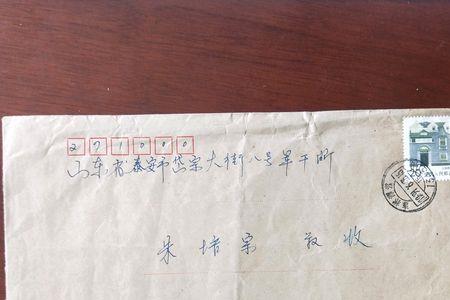 271000
山东省泰安市岱宗大街八号军干所
朱培宗 敬收